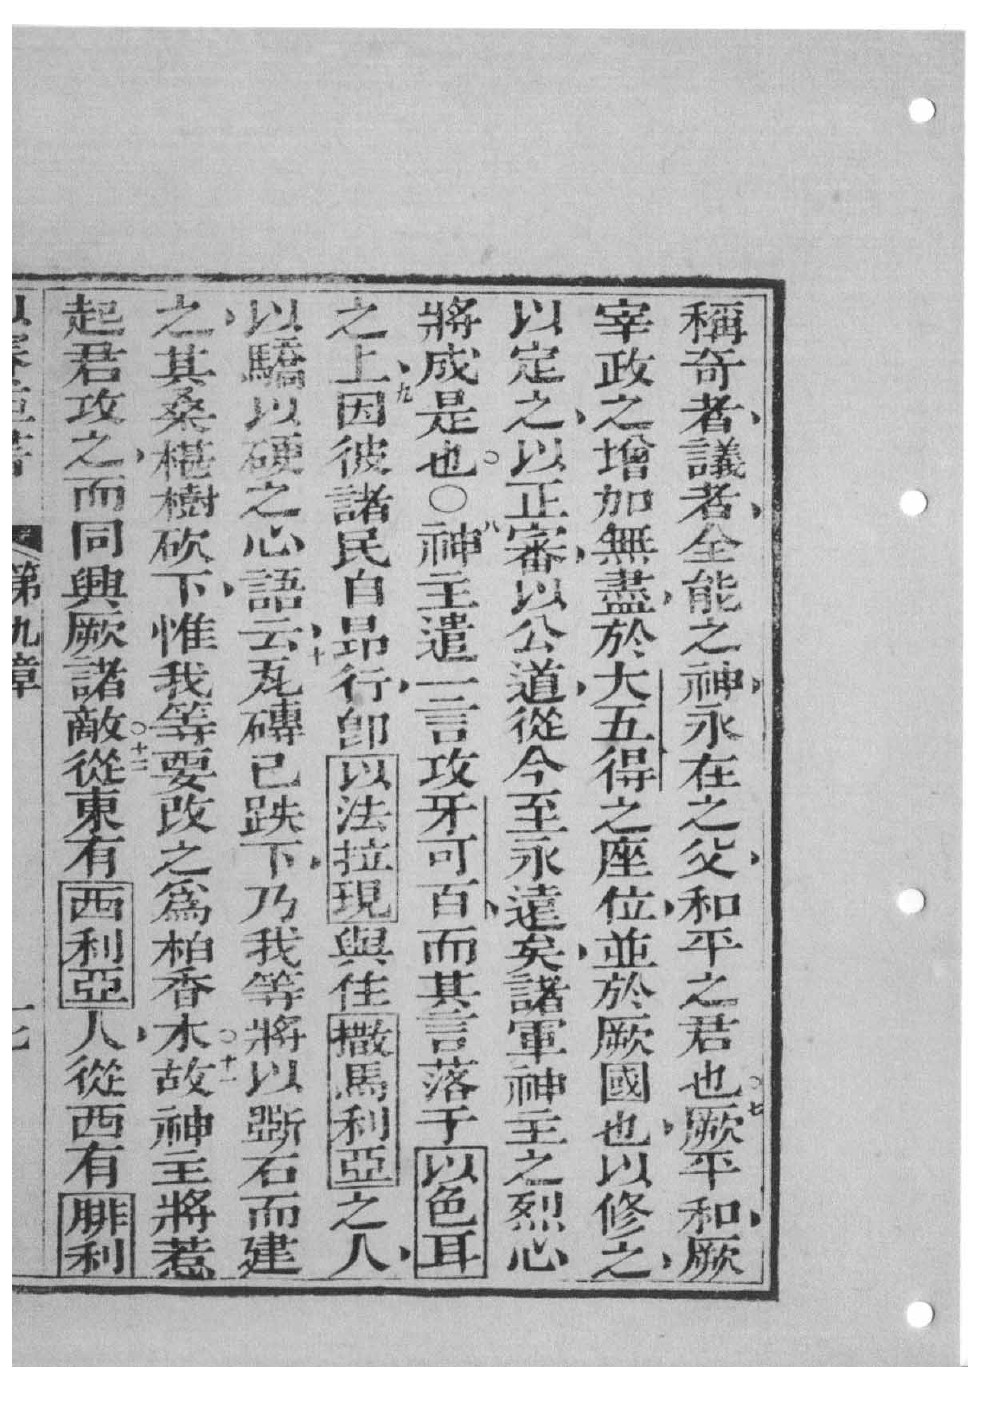 稱奇者、議者、全能之神、永在之父、和平之君也。七厥平和、厥
宰政之增加無盡、於大五得之座位、並於厥國也、以修之、
以定之、以正審、以公道、從今至永遠矣、諸軍神主之烈心
將成是也。○八神主遣一言攻牙可百、而其言落于以色耳
之上、九因彼諸民自昂行、卽以法拉現與住撒馬利亞之人、
以驕以硬之心語云、十瓦磚已跌下、乃我等將以斲石而建
之、其桑椹樹砍下、惟我等要改之爲柏香木。十一故神主將惹
起君攻之、而同興厥諸敵。十二從東有西利亞人、從西有腓利
第九章